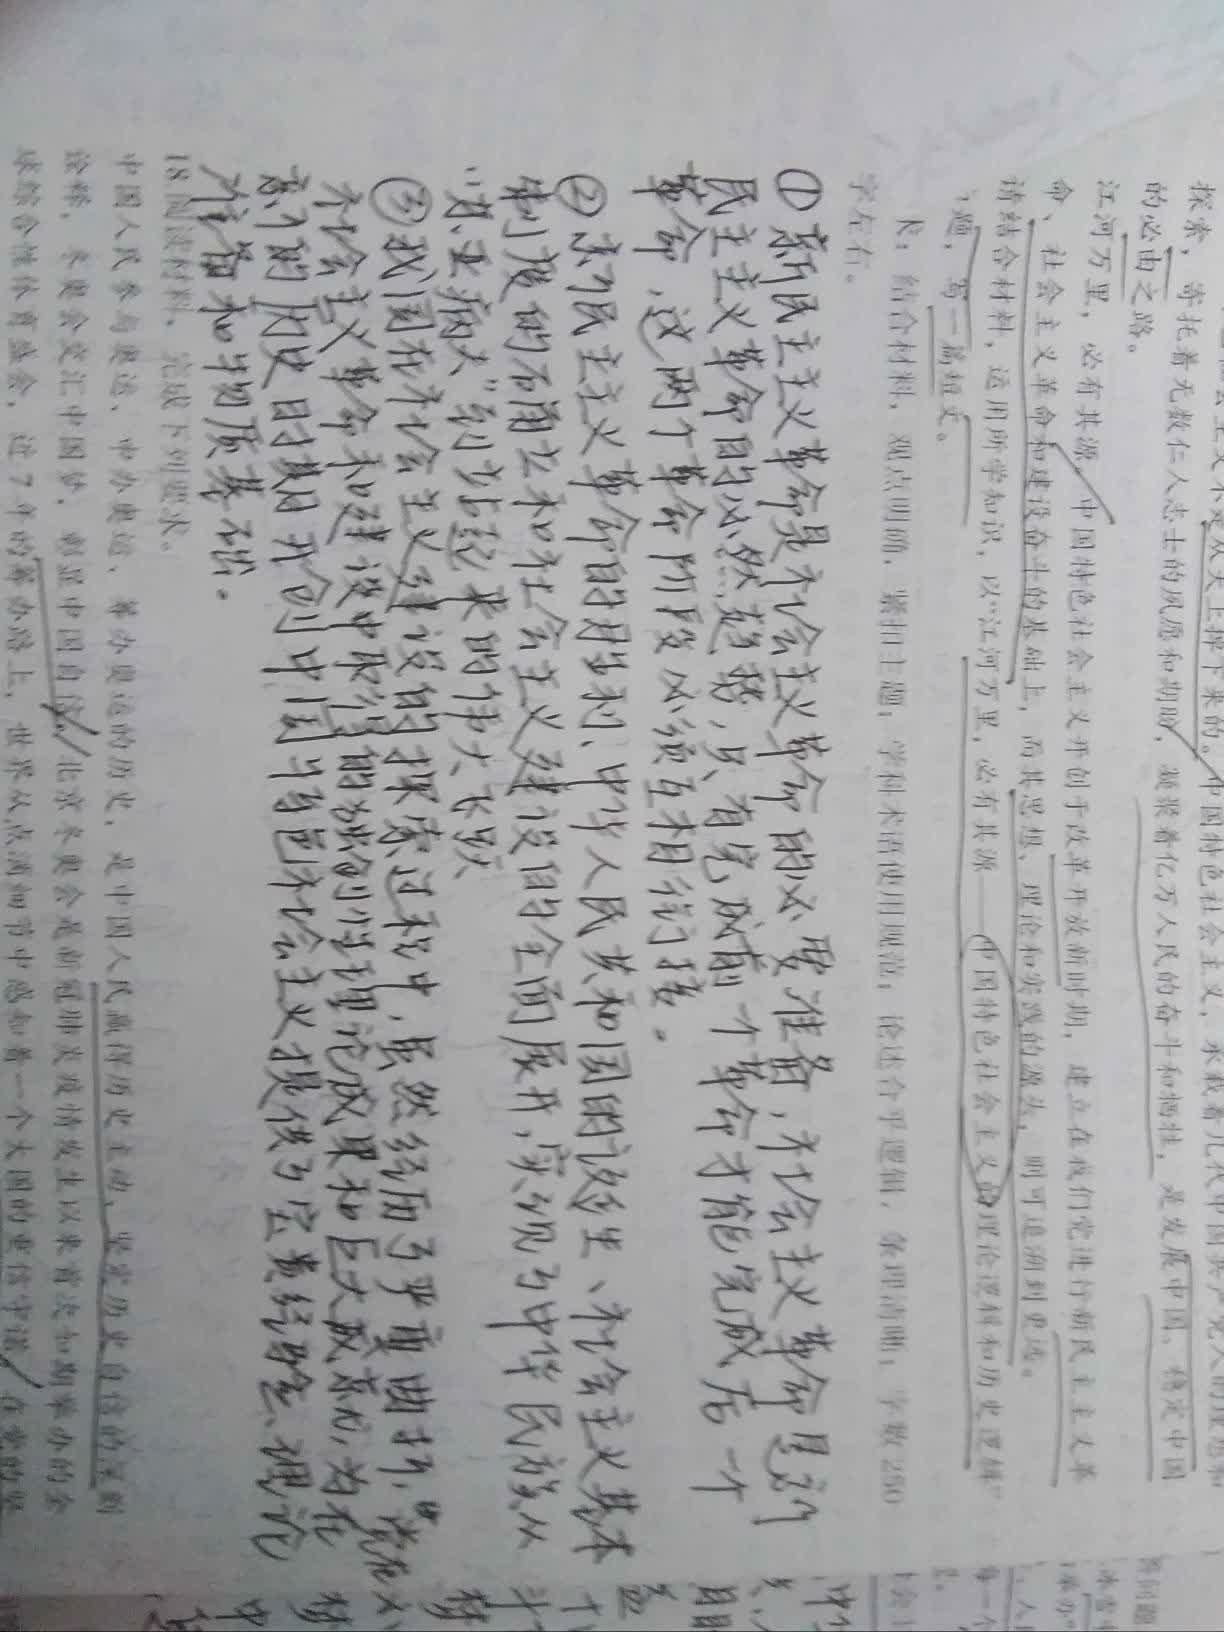 探索，寄托着无数仁人志士的夙愿和期盼，凝聚着亿万人民的奋斗和牺牲，是发展中国、稳定中国
的必由之路。
江河万里，必有其源。中国特色社会主义开创于改革开放新时期，建立在我们党进行新民主主义革
命、社会主义革命和建设奋斗的基础上，而其思想、理论和实践的源头，则可追溯到更远。
请结合材料，运用所学知识，以“江河万里，必有其源——中国特色社会主义的理论逻辑和历史逻辑”
题，写一篇短文。
求：结合材料，观点明确，紧扣主题，学科术语使用规范，论述合乎逻辑，条理清晰，字数250
字左右。
①新民主主义革命是社会主义革命的必要准备，社会主义革命是新
民主主义革命的必然趋势，只有完成前一个革命才能完成后一个
革命，这两个革命阶段必须互相衔接。
②新民主主义革命的胜利、中华人民共和国的诞生、社会主义基本
制度的确立和社会主义建设的全面展开，实现了中华民族从
“东亚病夫”到站起来的伟大飞跃
③我国在社会主义建设的探索过程中，虽然经历了严重曲折，“党在
社会主义革命和建设中取得的独创性理论成果和巨大成就，为在
新的历史时期开创中国特色社会主义提供了宝贵经验、理论
准备和物质基础。
18.阅读材料，完成下列要求。
中国人民参与奥运、申办奥运、筹办奥运的历史，是中国人民赢得历史主动、坚定历史自信的深刻
诠释。冬奥会交汇中国年，彰显中国自信。北京冬奥会是新冠肺炎疫情发生以来首次如期举办的全
球综合性体育盛会，这7年的筹办路上，世界从点滴细节中感知着一个大国的重信守诺。在党的坚